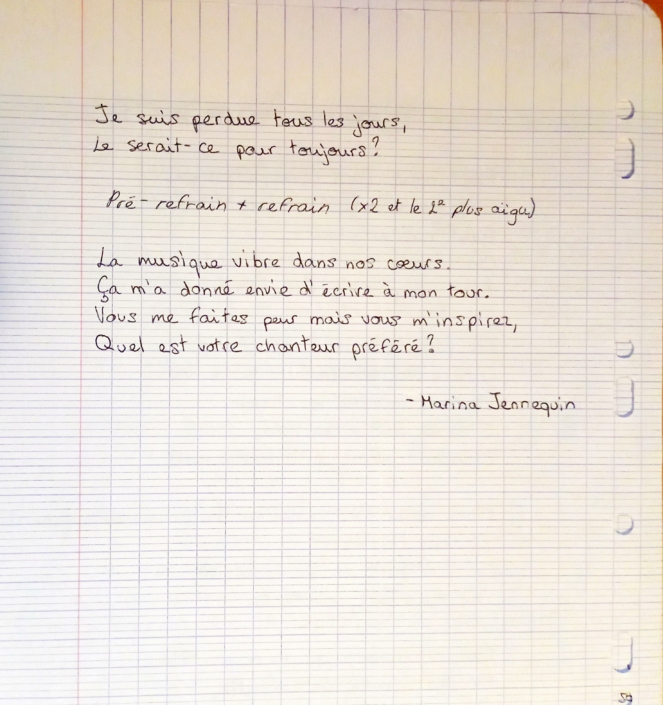 Je suis perdue tous les jours,
Le serait-ce pour toujours?
Pré-refrain + refrain (x2 et le 2e plus aïgu)
La musique vibre dans nos cœurs.
Ça m'a donné envie d'écrire à mon tour.
Vous me faites peur mais vous m'inspirez,
Quel est votre chanteur préféré?
- Marina Jennequin